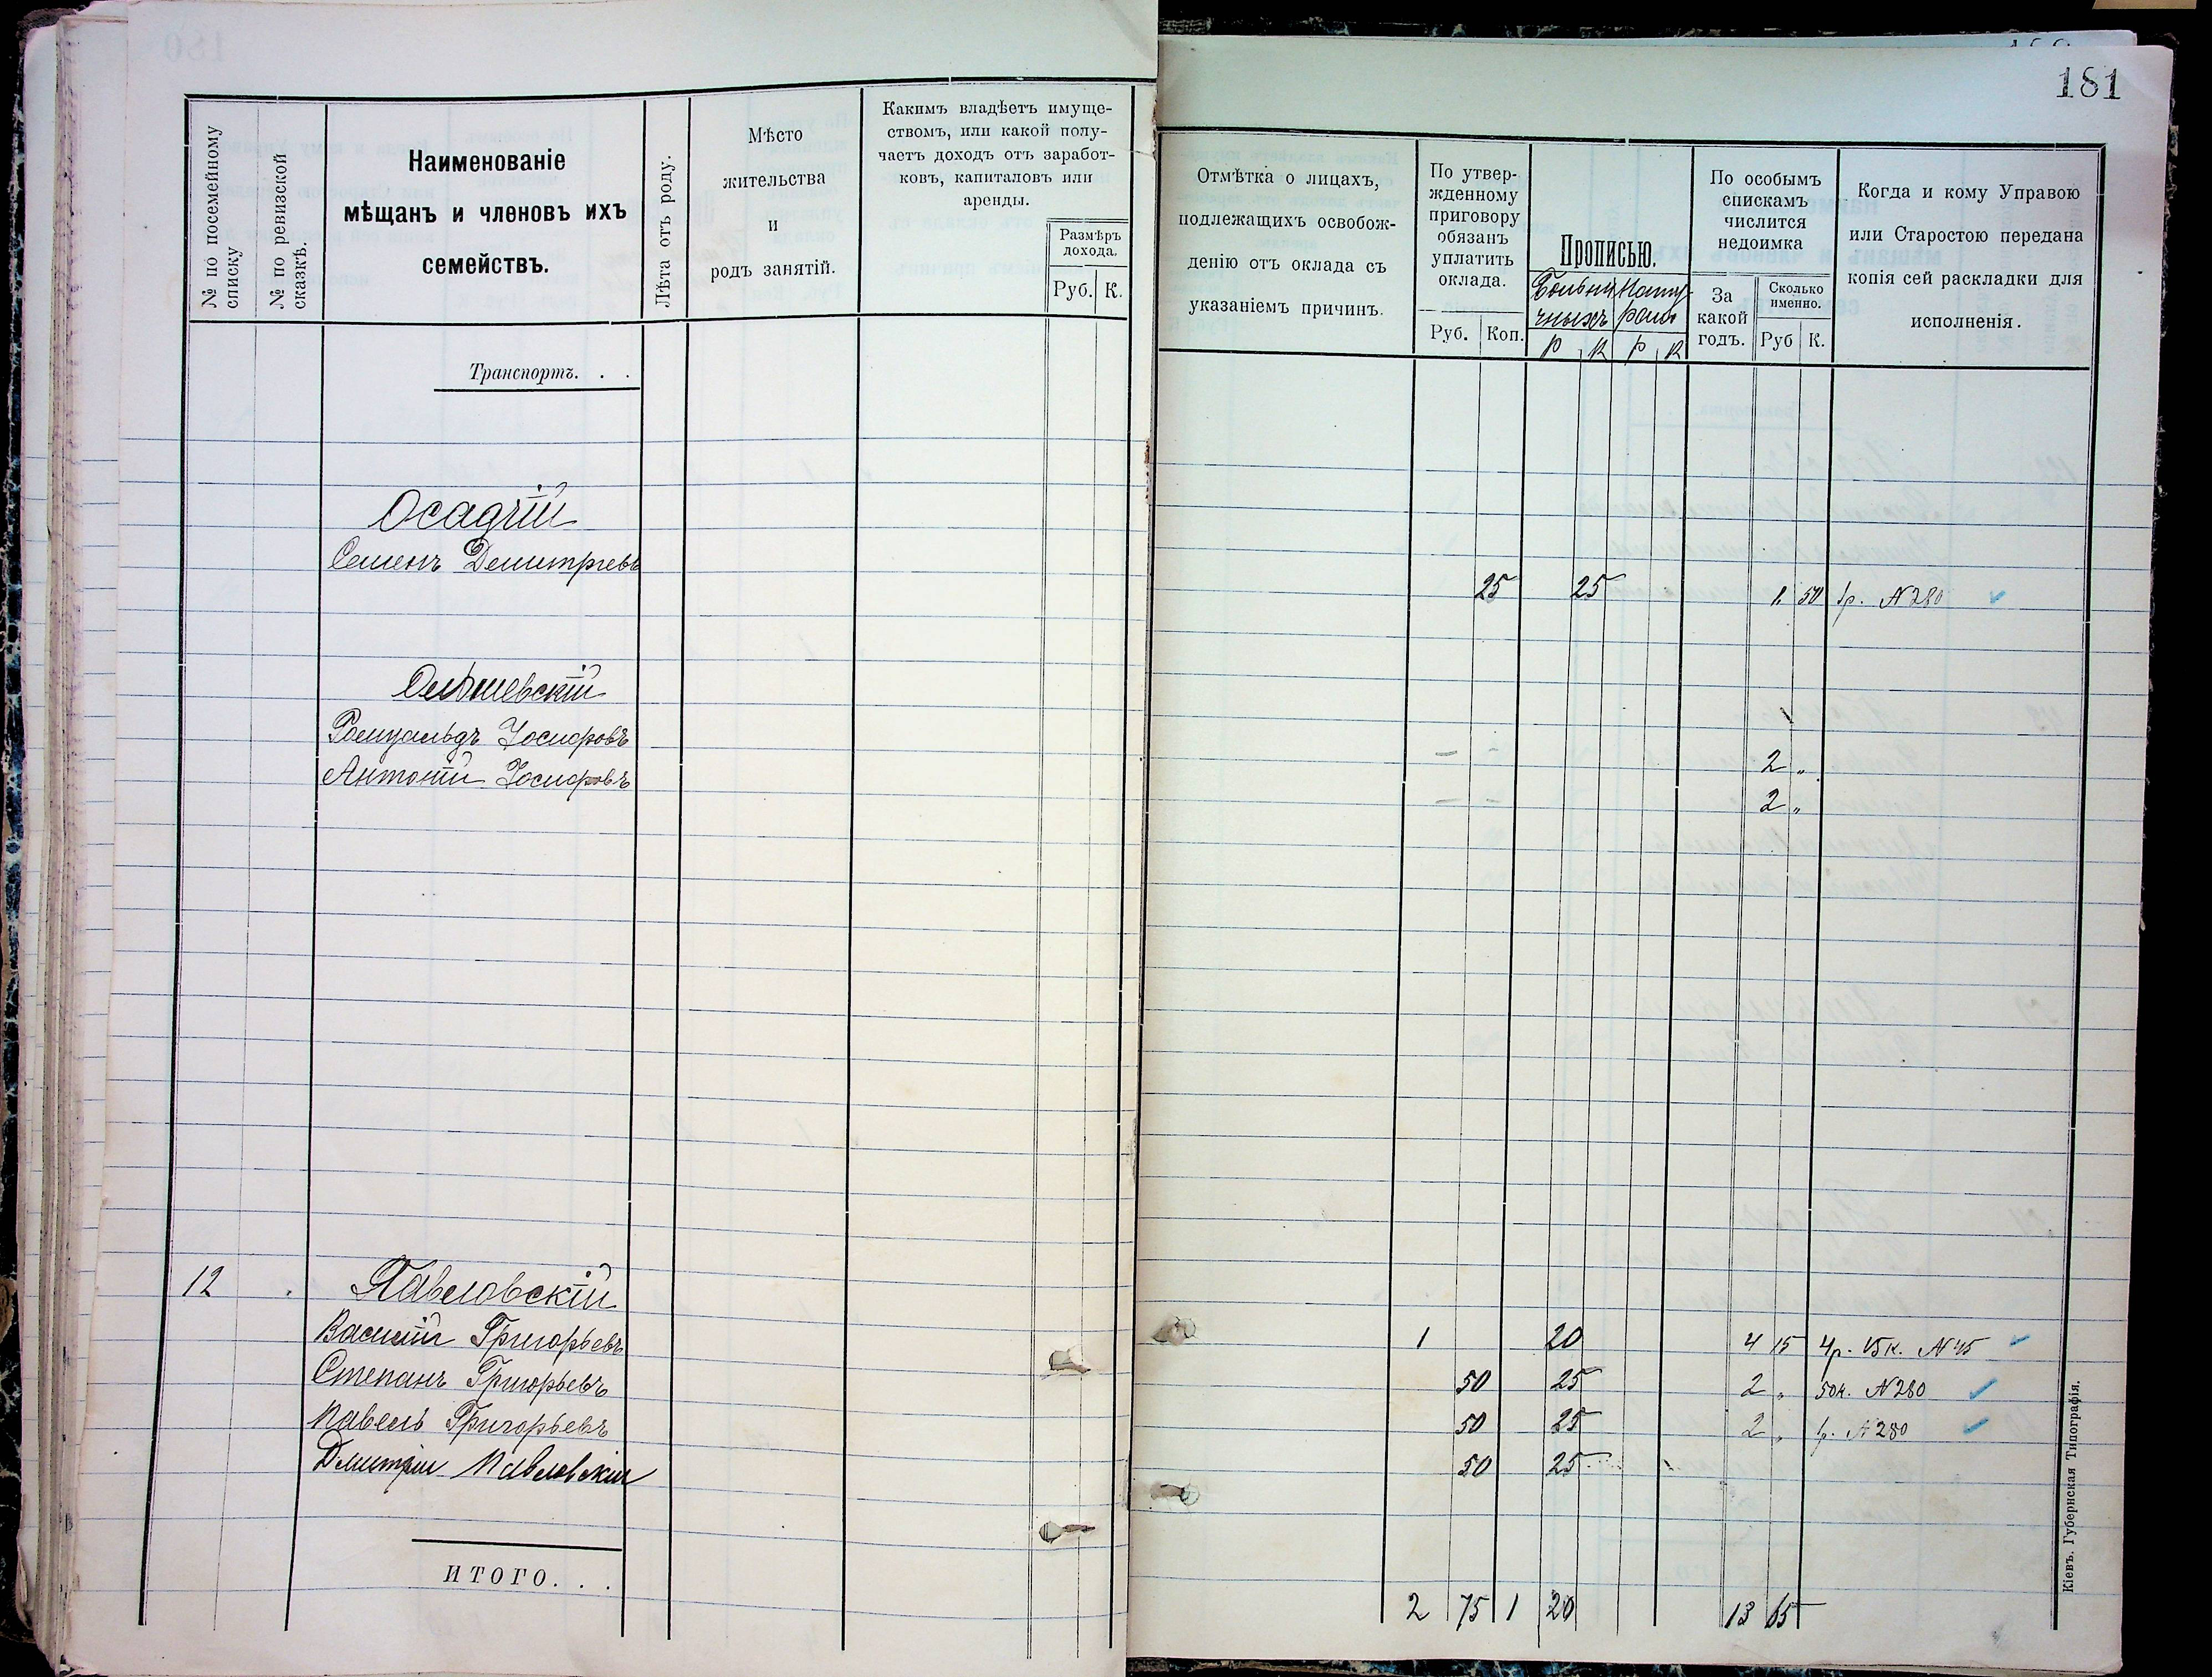 181
№ по посемейному списку
№ по ревизской сказкѣ.
Наименованіе
мѣщанъ и членовъ ихъ
семействъ.
Лѣта отъ роду.
Мѣсто
жительства
и
родъ занятій.
Какимъ владѣетъ имуще-
ствомъ, или какой полу-
чаетъ доходъ отъ заработ-
ковъ, капиталовъ или
аренды.
Размѣръ
дохода.
Руб. К.
Отмѣтка о лицахъ,
подлежащихъ освобож-
денію отъ оклада съ
указаніемъ причинъ.
По утвер-
жденному
приговору
обязанъ
уплатить
оклада.
Руб. Коп.
Прописью.
Больни
чныхъ
Р К Р К
По особымъ
спискамъ
числится
недоимка
За
какой
годъ.
Сколько
именно.
Руб К.
Когда и кому Управою
или Старостою передана
копія сей раскладки для
исполненія.
Транспортъ. . .
Осадчій
Семенъ Демитріевъ 25 25 1 50 1р. N 280
Олѣшевскій
Ромуальдъ Іосифовъ — - 2 „
Антоній Іосифовъ — - 2 „
12 Павловскій
Василій Григорьевъ 1 20 4 15 4р. 15к. N 45
Степанъ Григорьевъ 50 25 2 „ 50к. N 280
Павелъ Григорьевъ 50 25 2 „ 1р. N 280
Дмитрій Павловскій 50 25
ИТОГО. . . 2 75 1 20 13 65
Кіевъ. Губернская Типографія.